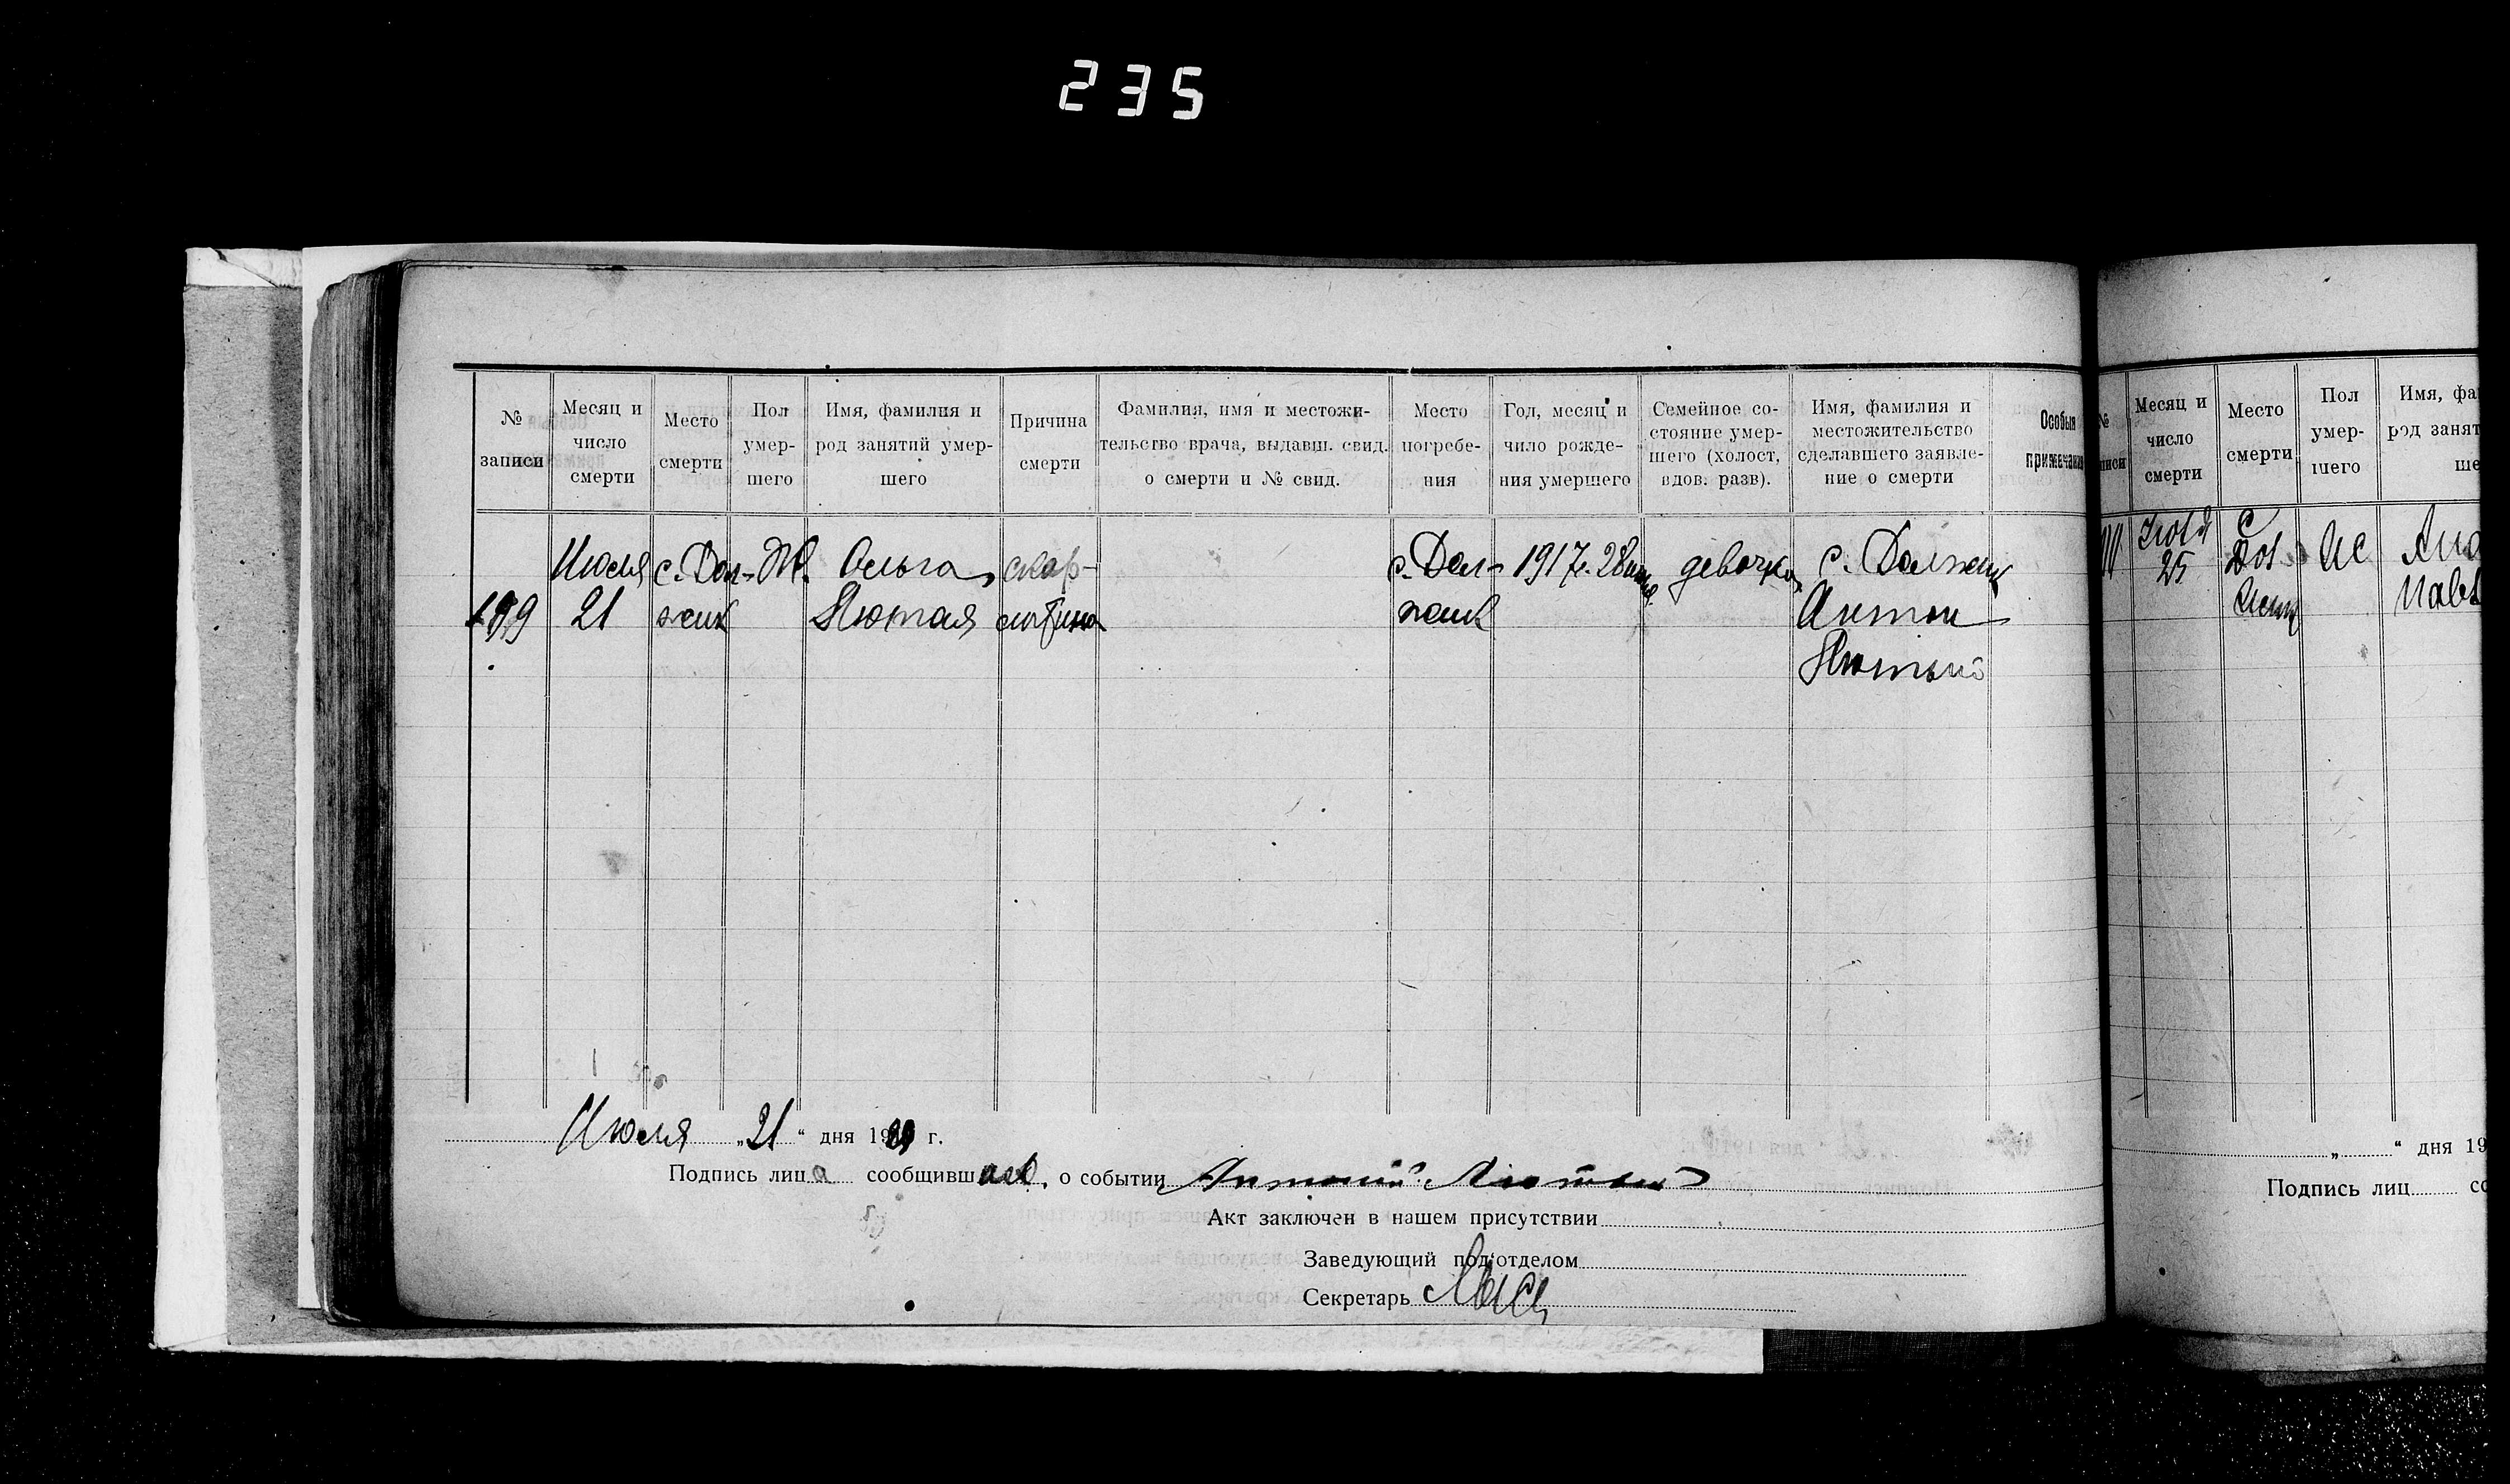 235
№ записи
Месяц и число смерти
Место смерти
Пол умер- шего
Имя, фамилия и род занятий умер- шего
Причина смерти
Фамилия, имя и местожи- тельство врача, выдавш. свид. о смерти и № свид.
Место погребе- ния
Год, месяц и чило рожде- ния умершего
Семейное со- стояние умер- шего (холост, вдов. разв).
Имя, фамилия и местожительство сделавшего заявле- ние о смерти
Особыя примечания
199
Июля 21
с. Дол- жик
Ж.
Ольга Лютая
скар- латина
с. Дол- жик
1917г. 28 июня
девочка
с. Должик
Антон
Лютый
Июля „21“ дня 19 г.
Подпись лица сообщивш о событии Антоний Лютый
Акт заключен в нашем присутствии
Заведующий под'отделом
Секретарь
№ писи
Месяц и число смерти
Место смерти
Пол умер- шего
Имя, фа
род занят
ше
25
„ “ дня 19
Подпись лиц со